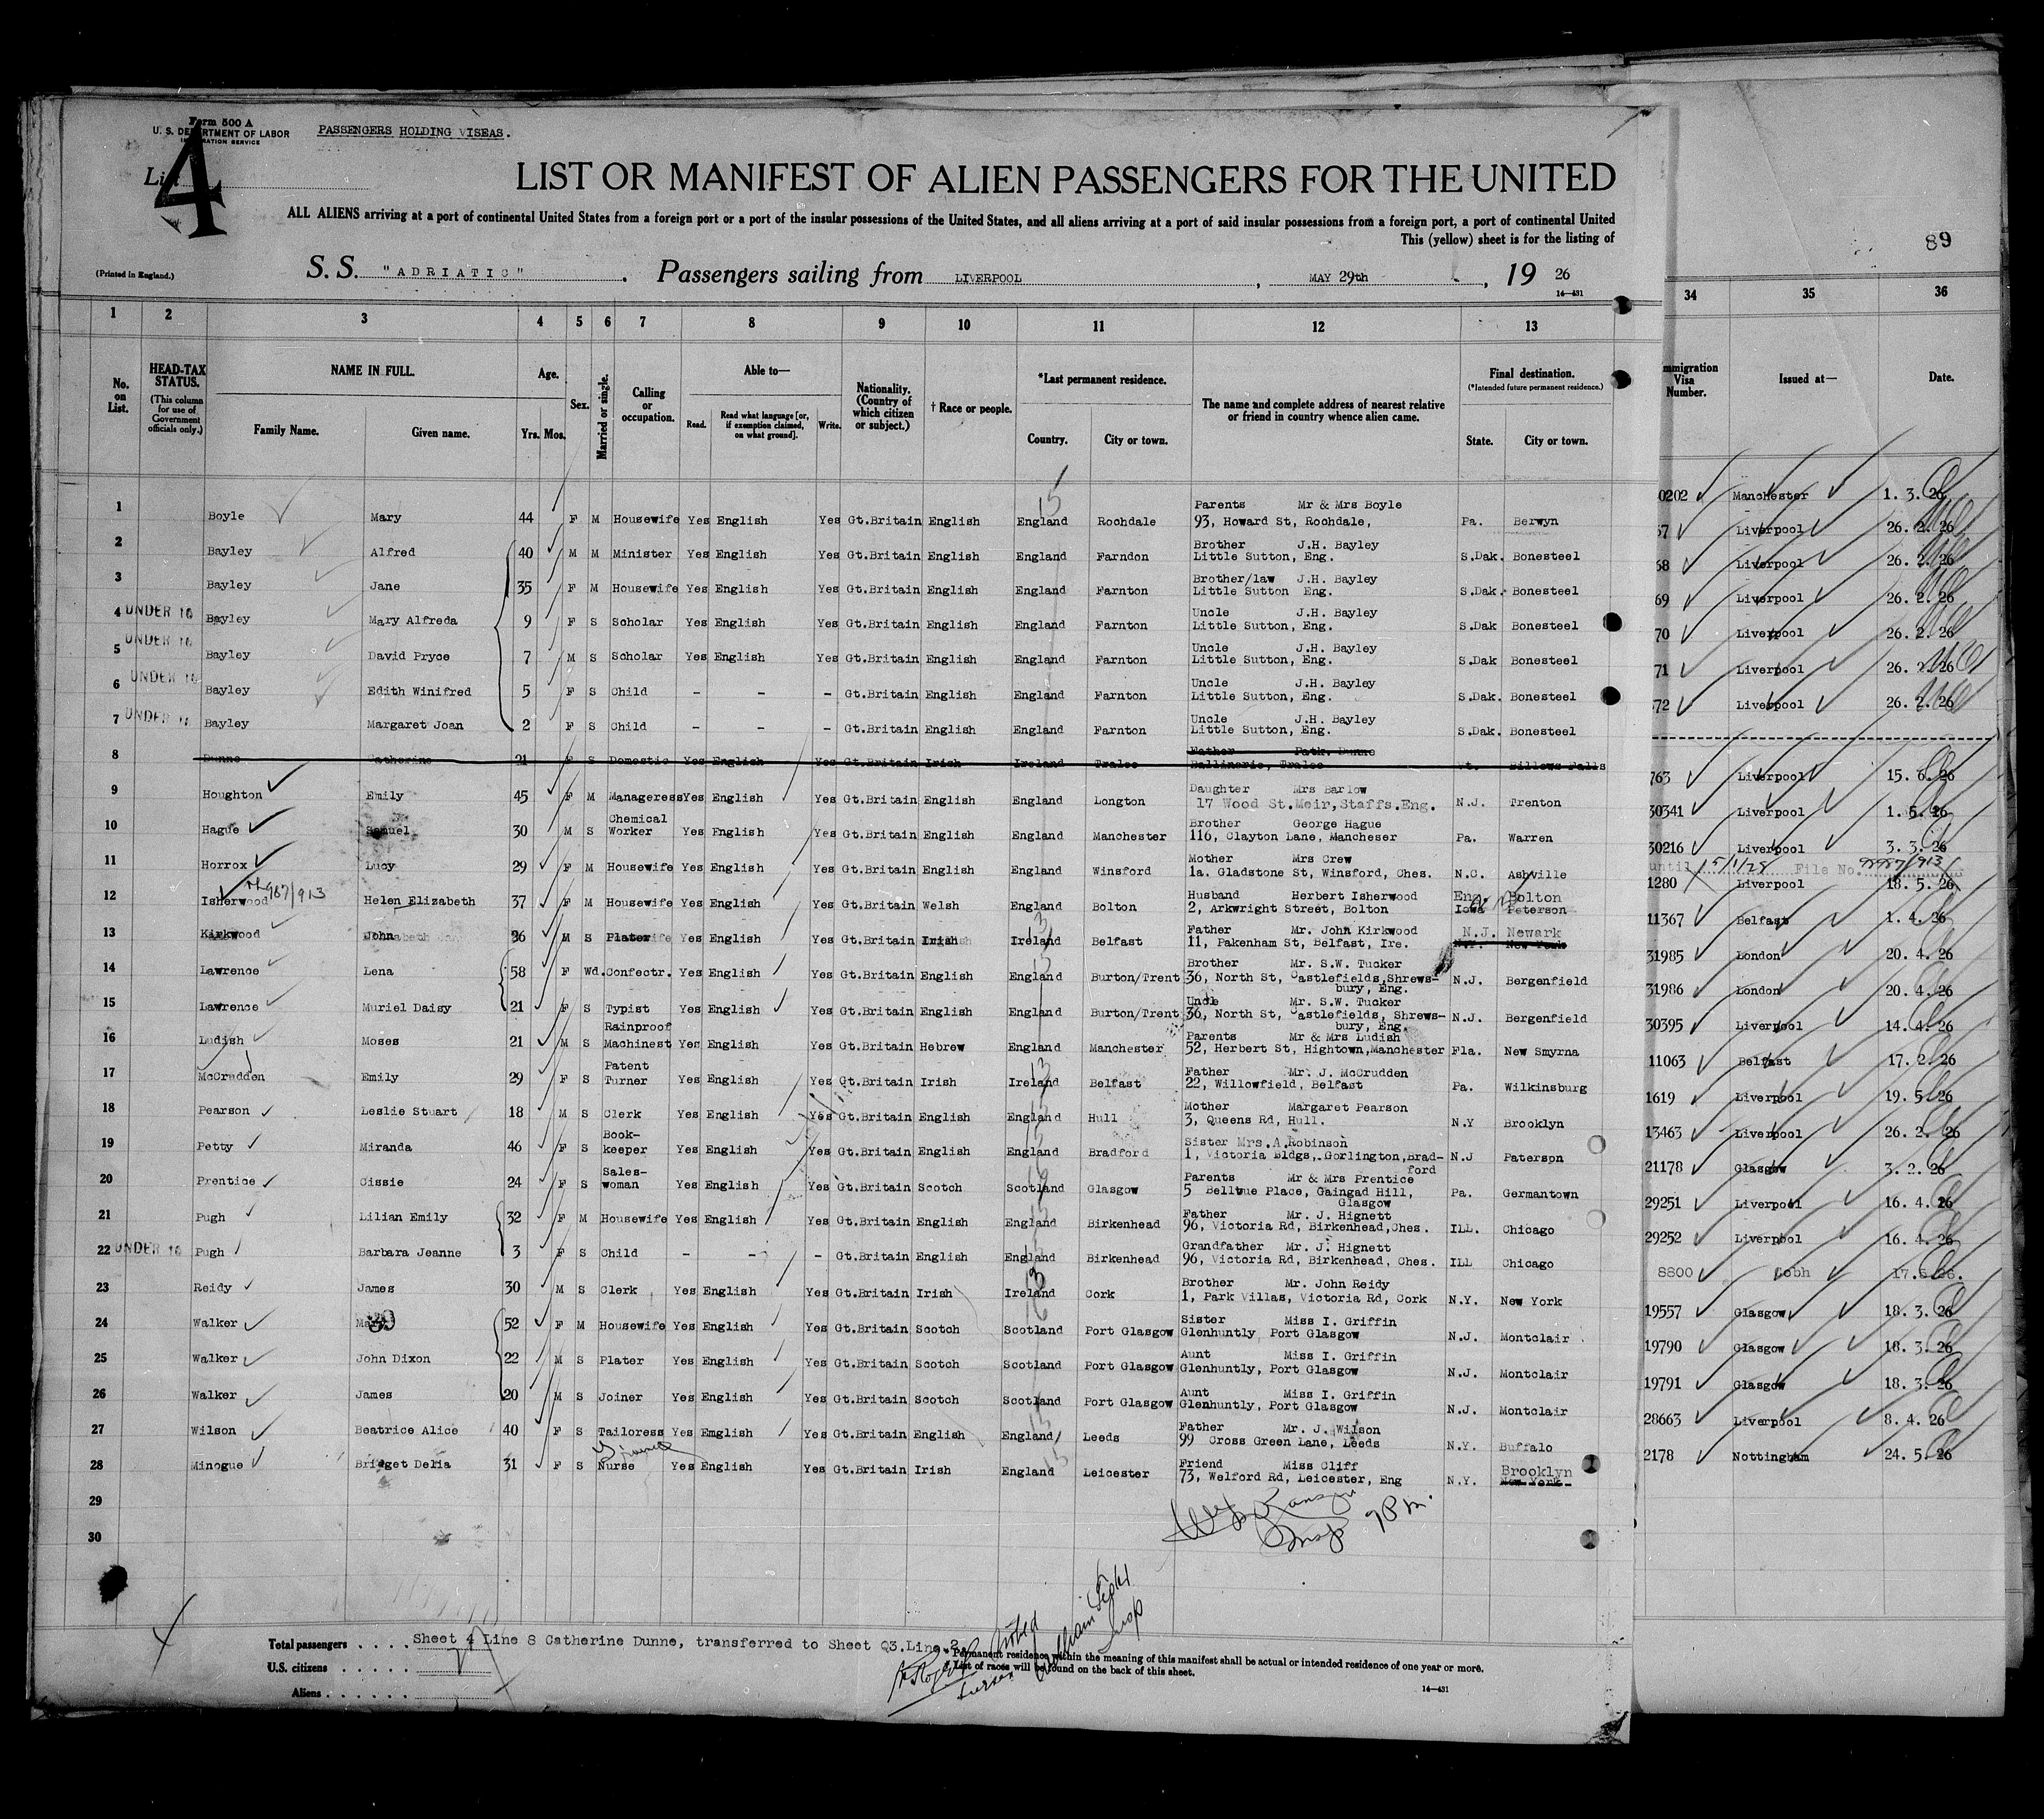 Form 500 A
U. S. DEPARTMENT OF LABOR
IMMIGRATION SERVICE
PASSENGERS HOLDING VISEAS.
List 4
LIST OR MANIFEST OF ALIEN PASSENGERS FOR THE UNITED
ALL ALIENS arriving at a port of continental United States from a foreign port or a port of the insular possessions of the United States, and all aliens arriving at a port of said insular possessions from a foreign port, a port of continental United
This (yellow) sheet is for the listing of
89
(Printed in England.)
S. S. "ADRIATIC". Passengers sailing from LIVERPOOL, MAY 29th, 19 26
14-431
1 2 3 4 5 6 7 8 9 10 11 12 13 34 35 36
No. on List.
HEAD-TAX STATUS. (This column for use of Government officials only.)
NAME IN FULL.
Family Name. Given name.
Age.
Yrs. Mos.
Sex.
Married or single.
Calling or occupation.
Able to—
Read. Read what language [or, if exemption claimed, on what ground]. Write.
Nationality. (Country of which citizen or subject.)
† Race or people.
*Last permanent residence.
Country. City or town.
The name and complete address of nearest relative or friend in country whence alien came.
Final destination.
(*Intended future permanent residence.)
State. City or town.
mmigration Visa Number.
Issued at—
Date.
Parents Mr & Mrs Boyle
1 Boyle Mary 44 F M Housewife Yes English Yes Gt.Britain English England Rochdale 93, Howard St, Rochdale, Pa. Berwyn 0202 Manchester 1. 3. 26
Brother J.H. Bayley
2 Bayley Alfred 40 M M Minister Yes English Yes Gt.Britain English England Farndon Little Sutton, Eng. S.Dak. Bonesteel 67 Liverpool 26. 2. 26
Brother/law J.H. Bayley
3 Bayley Jane 35 F M Housewife Yes English Yes Gt.Britain English England Farnton Little Sutton Eng. S.Dak. Bonesteel 68 Liverpool 26. 2. 26
Uncle J.H. Bayley
4 UNDER 16 Bayley Mary Alfreda 9 F S Scholar Yes English Yes Gt.Britain English England Farnton Little Sutton, Eng. S.Dak Bonesteel 69 Liverpool 26. 2. 26
Uncle J.H. Bayley
5 UNDER 16 Bayley David Pryce 7 M S Scholar Yes English Yes Gt.Britain English England Farnton Little Sutton, Eng. S.Dak Bonesteel 70 Liverpool 26. 2. 26
Uncle J.H. Bayley
6 UNDER 16 Bayley Edith Winifred 5 F S Child - - - Gt.Britain English England Farnton Little Sutton, Eng. S.Dak. Bonesteel 71 Liverpool 26. 2. 26
Uncle J.H. Bayley
7 UNDER 16 Bayley Margaret Joan 2 F S Child - - - Gt.Britain English England Farnton Little Sutton, Eng. S.Dak. Bonesteel 72 Liverpool 26. 2. 26
Father Patk. Dunne
8 Dunne Catherine 21 F S Domestic Yes English Yes Gt.Britain Irish Ireland Tralee Ballinorig, Tralee Vt. Billows Falls
Daughter Mrs Barlow
9 Houghton Emily 45 F M Manageress Yes English Yes Gt.Britain English England Longton 17 Wood St.Meir,Staffs.Eng. N.J. Trenton 763 Liverpool 15. 6. 26
Chemical Brother George Hague
10 Hague Samuel 30 M S Worker Yes English Yes Gt.Britain English England Manchester 116, Clayton Lane, Mancheser Pa. Warren 30341 Liverpool 1. 5. 26
Mother Mrs Crew
11 Horrox Lucy 29 F M Housewife Yes English Yes Gt.Britain English England Winsford 1a. Gladstone St, Winsford, Ches. N.C. Ashville 30216 Liverpool 3. 3. 26
until 5/1/28 File No. 99987/913
987/913 Husband Herbert Isherwood Eng. Bolton
12 Isherwood Helen Elizabeth 37 F M Housewife Yes English Yes Gt.Britain Welsh England Bolton 2, Arkwright Street, Bolton Iowa Peterson 1280 Liverpool 18. 5. 26
Father Mr. John Kirkwood N.J. Newark
13 Kirkwood John 36 M S Plater Yes English Yes Gt.Britain Irish Ireland Belfast 11, Pakenham St, Belfast, Ire. N.Y. New York 11367 Belfast 1. 4. 26
Brother Mr. S.W. Tucker
14 Lawrence Lena 58 F Wd. Confectr. Yes English Yes Gt.Britain English England Burton/Trent 36, North St, Castlefields,Shrews- N.J. Bergenfield 31985 London 20. 4. 26
bury, Eng.
Uncle Mr. S.W. Tucker
15 Lawrence Muriel Daisy 21 F S Typist Yes English Yes Gt.Britain English England Burton/Trent 36, North St, Castlefields, Shrews- N.J. Bergenfield 31986 London 20. 4. 26
bury, Eng.
Rainproof Parents Mr & Mrs Ludish
16 Ludish Moses 21 M S Machinest Yes English Yes Gt.Britain Hebrew England Manchester 52, Herbert St, Hightown,Manchester Fla. New Smyrna 30395 Liverpool 14. 4. 26
Patent Father Mr. J. McCrudden
17 McCrudden Emily 29 F S Turner Yes English Yes Gt.Britain Irish Ireland Belfast 22, Willowfield, Belfast Pa. Wilkinsburg 11063 Belfast 17. 2. 26
Mother Margaret Pearson
18 Pearson Leslie Stuart 18 M S Clerk Yes English Yes Gt.Britain English England Hull 3, Queens Rd, Hull. N.Y Brooklyn 1619 Liverpool 19. 5. 26
Book- Sister Mrs.A.Robinson
19 Petty Miranda 46 F S keeper Yes English Yes Gt.Britain English England Bradford 1, Victoria Bldgs, Gorlington,Brad- N.J Paterson 13463 Liverpool 26. 2. 26
ford
Sales- Parents Mr & Mrs Prentice
20 Prentice Cissie 24 F S woman Yes English Yes Gt.Britain Scotch Scotland Glasgow 5 Belltue Place, Gaingad Hill, Pa. Germantown 21178 Glasgow 3. 2. 26
Glasgow
Father Mr. J. Hignett
21 Pugh Lilian Emily 32 F M Housewife Yes English Yes Gt.Britain English England Birkenhead 96, Victoria Rd, Birkenhead,Ches. ILL. Chicago 29251 Liverpool 16. 4. 26
Grandfather Mr. J. Hignett
22 UNDER 16 Pugh Barbara Jeanne 3 F S Child - - - Gt.Britain English England Birkenhead 96, Victoria Rd, Birkenhead, Ches. ILL Chicago 29252 Liverpool 16. 4. 26
Brother Mr. John Reidy
23 Reidy James 30 M S Clerk Yes English Yes Gt.Britain Irish Ireland Cork 1, Park Villas, Victoria Rd, Cork N.Y. New York 8800 Cobh 17.5.26.
Sister Miss I. Griffin
24 Walker Mary 52 F M Housewife Yes English Yes Gt.Britain Scotch Scotland Port Glasgow Glenhuntly, Port Glasgow N.J. Montclair 19557 Glasgow 18. 3. 26
Aunt Miss I. Griffin
25 Walker John Dixon 22 M S Plater Yes English Yes Gt.Britain Scotch Scotland Port Glasgow Glenhuntly, Port Glasgow N.J. Montclair 19790 Glasgow 18. 3. 26
Aunt Miss I. Griffin
26 Walker James 20 M S Joiner Yes English Yes Gt.Britain Scotch Scotland Port Glasgow Glenhuntly, Port Glasgow N.J. Montclair 19791 Glasgow 18. 3. 26
Father Mr. J. Wilson
27 Wilson Beatrice Alice 40 F S Tailoress Yes Emglish Yes Gt.Britain English England Leeds 99 Cross Green Lane, Leeds N.Y. Buffalo 28663 Liverpool 8. 4. 26
Friend Miss Cliff Brooklyn
28 Minogue Bridget Delia 31 F S Nurse Yes English Yes Gt.Britain Irish England Leicester 73, Welford Rd, Leicester, Eng N.Y. New York 2178 Nottingham 24. 5. 26
29
30
Insp 9 P.m.
Total passengers . . . . Sheet 4 Line 8 Catherine Dunne, transferred to Sheet Q3.Line 2.
* Permanent residence within the meaning of this manifest shall be actual or intended residence of one year or more.
U.S. citizens . . . . .
† List of races will be found on the back of this sheet.
Aliens . . . . . .
14-431